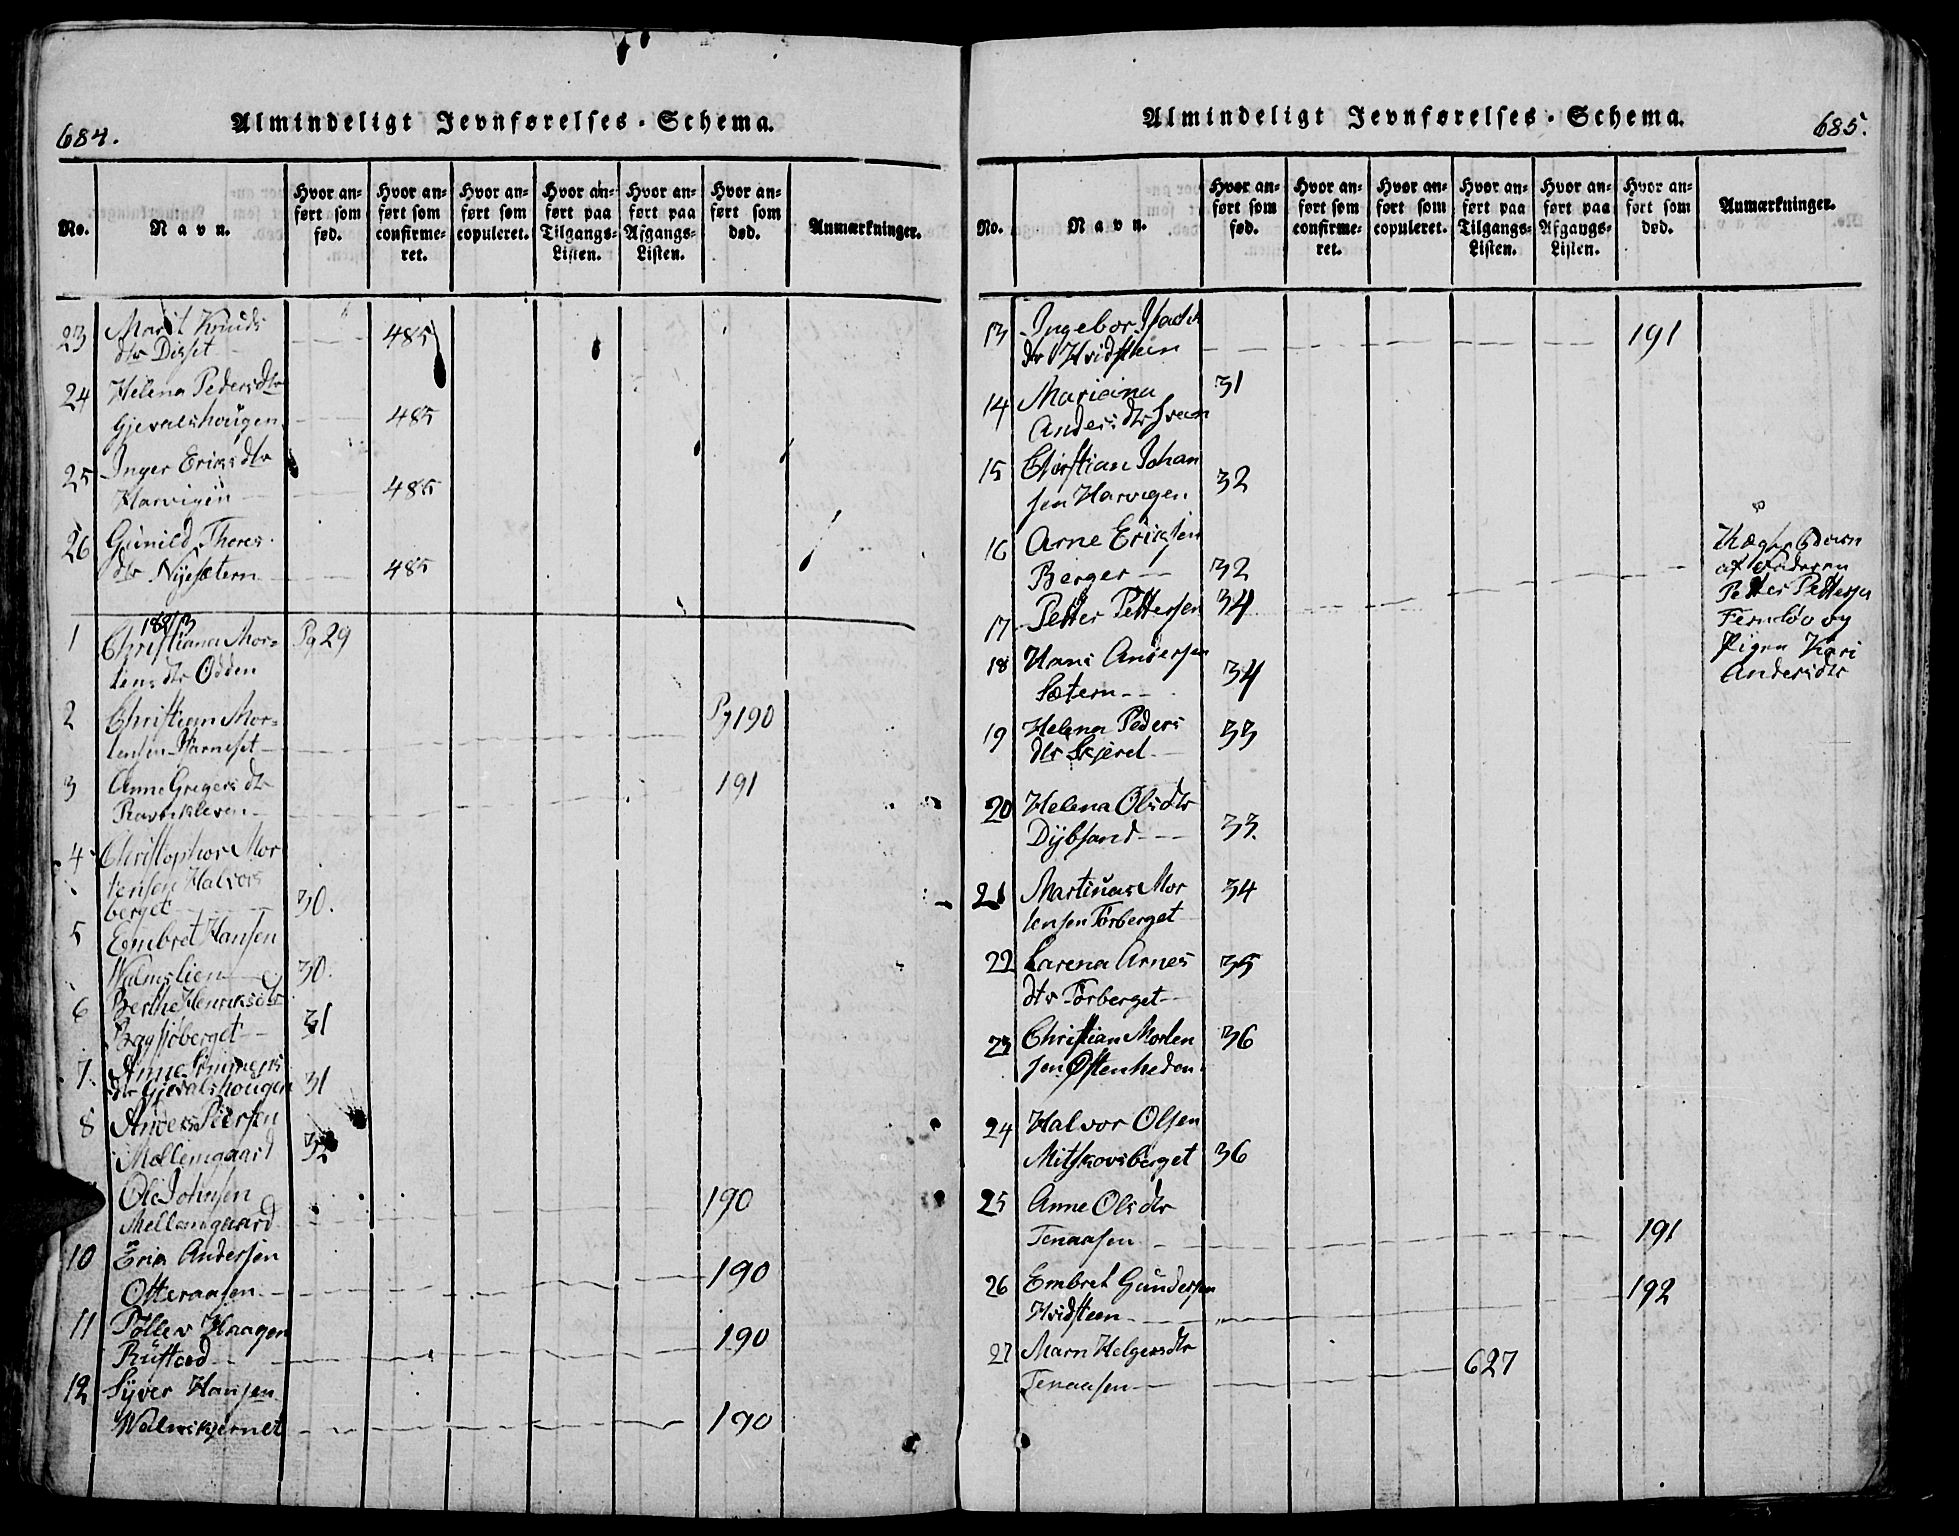 684.
Almindeligt Jevnførelses-Schema.
No.
Navn.
Hvor an-
ført som
fød.
Hvor an-
ført som
confirme-
ret.
Hvor an-
ført som
copuleret.
Hvor an-
ført paa
Tilgangs-
Listen.
Hvor an-
ført paa
Afgangs-
Listen.
Hvor an-
ført som
død.
Anmærkninger.
23 Marit Knuds
dtr Digset 485
24 Helena Pedersdtr
Gjevalshougen 485
25 Inger Eriksdtr
Harvigen 485
26 Gunild Thores
dtr Nyesætern 485
1 Christiana Mor- Pg 29
tens dtr Odden
2 Christian Mor- Pg 190
tensen Varneset
3 Anne Gregersdtr 191
4 Christopher Mor
tensen Halvors
berget 30.
5 Embret Hansen
Walmslien 30.
6 Berthe Henriksdtr
Bagsjøberget 31
7. Anne
dtr Gjevalshougen 31
8 Anders Peersen
Mellemgaard 32
Ole Johnsen 190
Mellemgaard
10 Eria Andersen
Otteraasen 190
11 Tollev Haagen 190
Rustad
12 Syver Hansen
190
Almindeligt Jevnførelses-Schema.
685.
No.
Navn.
Hvor an-
ført som
fød.
Hvor an-
ført som
confirme-
ret.
Hvor an-
ført som
copuleret.
Hvor an-
ført paa
Tilgangs-
Listen.
Hvor an-
ført paa
Afgangs-
Listen.
Hvor an-
ført som
død.
Anmærkninger.
13 Ingebor Isach
dtr Hvidsteen 191
14 Mariana 31
Andersdtr
15 Christian Johan
sen Harvigen 32
16 Arne Eriksen
Berger 32
17 Petter Pettersen 34
18 Hans Andersen
Sætern 34
19 Helena Peders 33
dtr Skjerel
20 Helena Olsdtr
Dybsand 33.
21 Martinus Mor 34
tensen Torberget
22 Karena Arnes 35
dtr Torberget
23 Christian Morten 36
sen Østenheden
24 Halvor Olsen
Mitskovsberget 36
25 Anne Olsdtr
Tenaasen 191
26 Embret Gundersen 192
Hvidsteen
27 Marn Helgersdtr
Tenaasen 627
af Faderen
Petter Pettersen
og
Pigen Kari
Andersdtr